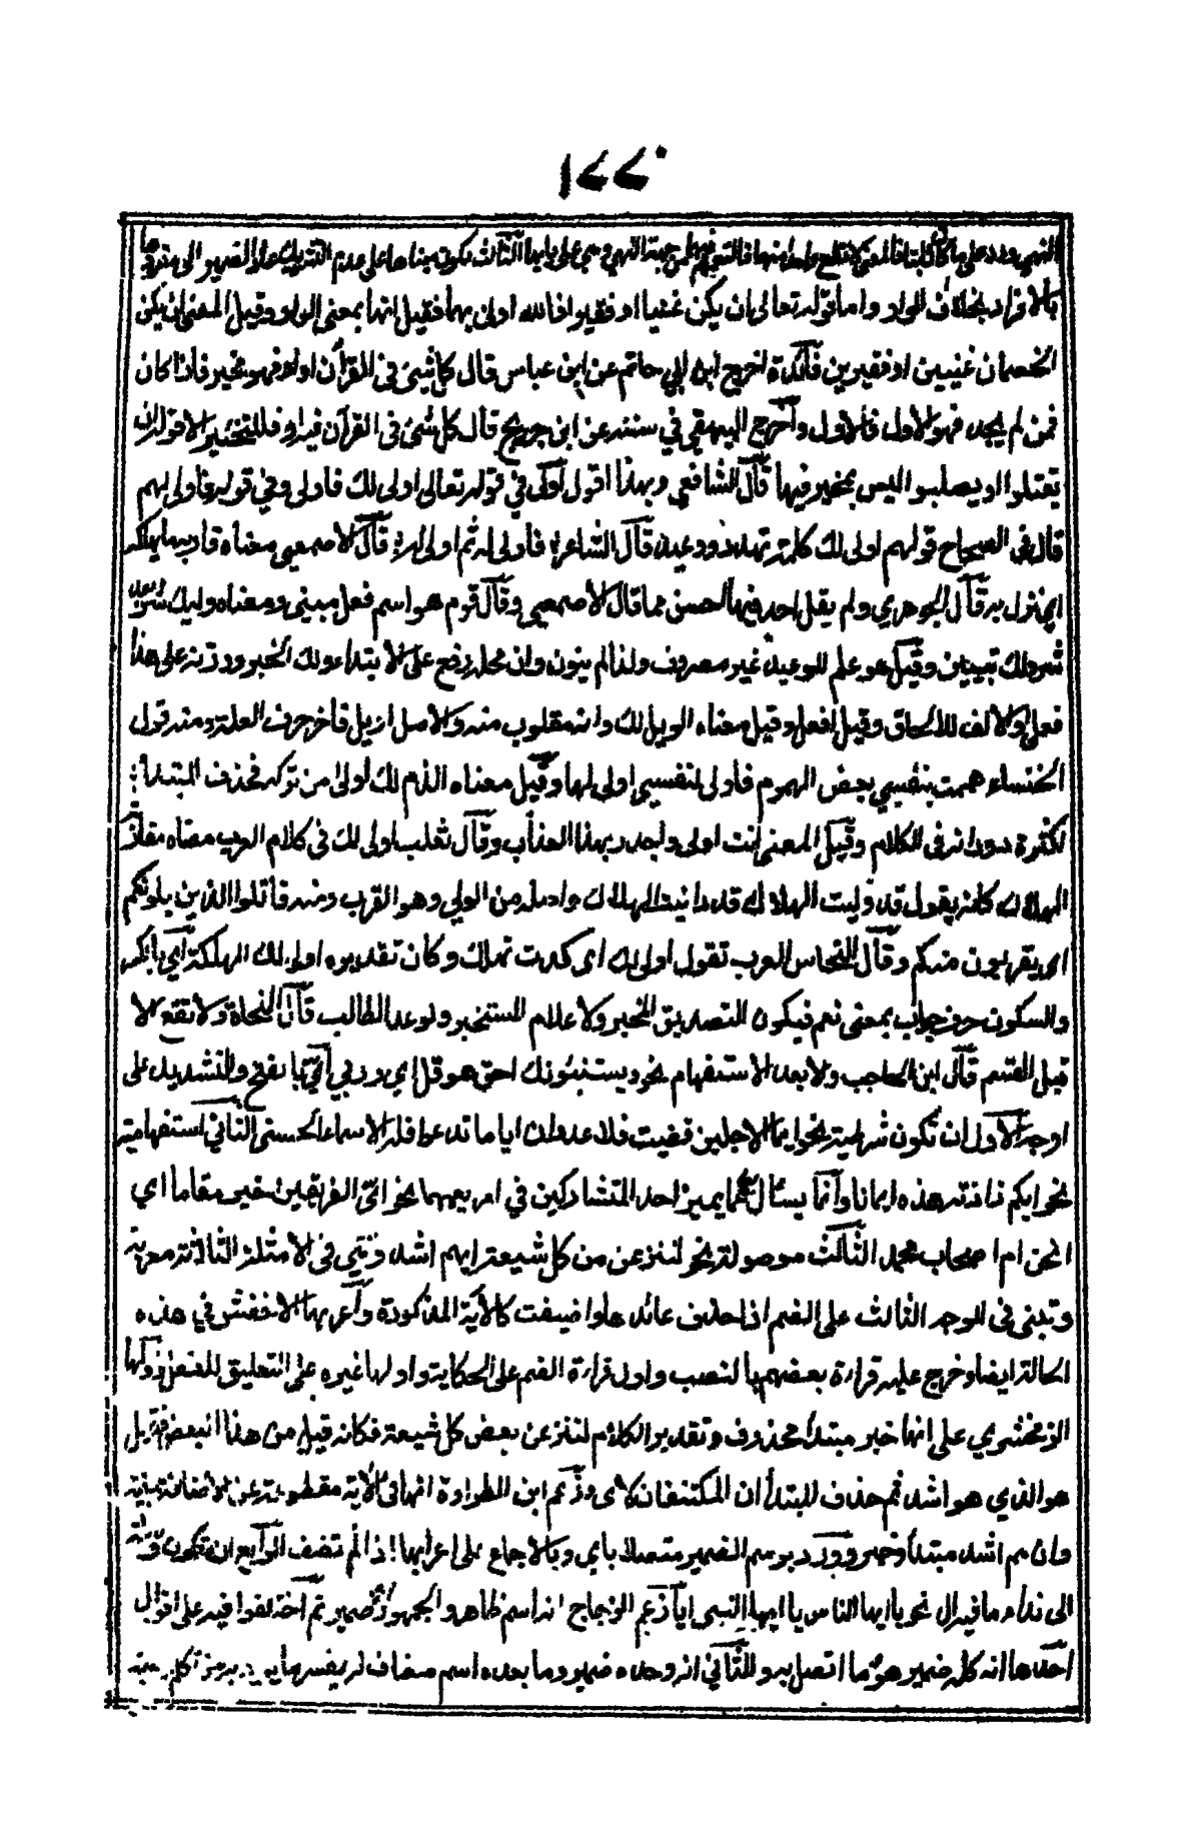 ١٧٧٠
النهي ورد على ما كان مباحا فالمعنى لا تطع واحدا منهما فالتعميم فيهما من جهة النهي وهي على بابها الثالث يكون مبناها على عدم التشريك عاد الضمير الى مفردها
بالافراد بخلاف الواو واما قوله تعالى ان يكن غنيا او فقيرا فالله اولى بهما فقيل انها بمعنى الواو وقيل المعنى ان يكن
الخصمان غنيين او فقيرين فائدة اخرج ابن ابي حاتم عن ابن عباس قال كل شيئ في القرآن او او فهو مخير فاذا كان
فمن لم يجد فهو الاول فالاول وآخرج البيهقي في سننه عن ابن جريج قال كل شئ في القرآن فيه او فللتخيير الا قوله ان
يقتلوا او يصلبوا ليس بمخير فيها قال الشافعي وبهذا اقول اولى في قوله تعالى اولى لك فاولى وفي قوله فاولى لهم
قال في الصحاح قولهم اولى لك كلمة تهدد ووعيد قال الشاعر فاولى له ثم اولى له قال الاصمعي معناه قاربه ما يهلكه
اي نزل به قال الجوهري ولم يقل احد فيها احسن مما قال الاصمعي وقال قوم هو اسم فعل مبني ومعناه وليك شر بعد
شر ولك تبيين وقيل هو علم للوعيد غير مصروف ولذا لم ينون وان محله رفع على الابتداء ولك الخبر ووزنه على هذا
فعلى والالف للالحاق وقيل افعل وقيل معناه الويل لك وانه مقلوب منه والاصل اويل فاخر حرف العلة ومنه قول
الخنساء هممت بنفسي بعض الهموم فاولى لنفسي اولى لها وقيل معناه الذم لك اولى من تركه فحذف المبتدأ
لكثرة دورانه في الكلام وقيل المعنى انت اولى واجدر بهذا العذاب وقال ثعلب اولى لك في كلام العرب معناه مقاربة
الهلاك كانه يقول قد وليت الهلاك قد دانيت الهلاك واصله من الولي وهو القرب ومنه قاتلوا الذين يلونكم
اى يقربون منكم وقال النحاس العرب تقول اولى لك اى كدت تهلك وكان تقديره اولى لك الهلكة اي بالكسر
والسكون حرف جواب بمعنى نعم فيكون لتصديق المخبر ولاعلام المستخبر ولوعد الطالب قال النحاة ولا تقع الا
قبل القسم قال ابن الحاجب والا بعد الاستفهام نحو ويستنبئونك احق هو قل اي وربي أيّ بالفتح والتشديد على
اوجه الاول ان تكون شرطية نحو ايما الاجلين قضيت فلا عدوان ايا ما تدعوا فله الاسماء الحسنى الثاني استفهامية
نحو ايكم زادته هذه ايمانا وانما يسأل بها عما يميز احد المتشاركين في امر يعمهما نحو اىّ الفريقين خير مقاما اي
انحن ام اصحاب محمد الثالث موصولة نحو لننزعن من كل شيعة ايهم اشد وهي في الامثلة الثلاثة معربة
وتبنى في الوجه الثالث على الضم اذا حذف عائدها واضيفت كالآية المذكورة وآعربها الاخفش في هذه
الحالة ايضا وخرج عليه قراءة بعضهم بالنصب واول قراءة الضم على الحكاية واولها غيره على التعليق للفعل واولها
الزمخشري على انها خبر مبتدأ محذوف وتقدير الكلام لننزعن بعض كل شيعة فكانه قيل من هذا البعض فقيل
هو الذي هو اشد ثم حذف المبتدأن المكتنفان لاى وزعم ابن الطراوة انها في الآية مقطوعة عن الاضافة مبنية
وان هم اشد مبتدأ وخبر ورد برسم الضمير متصلا باي وبالاجماع على اعرابها اذا لم تضف الرابع ان تكون وصلة
الى نداء ما فيه ال نحو يا ايها الناس يا ايها النبي ايا زعم الزجاج انه اسم ظاهر والجمهور ضمير ثم آختلفوا فيه على اقوال
احدها انه كله ضمير هو وما اتصل به والثاني انه وحده ضمير وما بعده اسم مضاف له يفسر ما يراد به من تكلم وغيبة